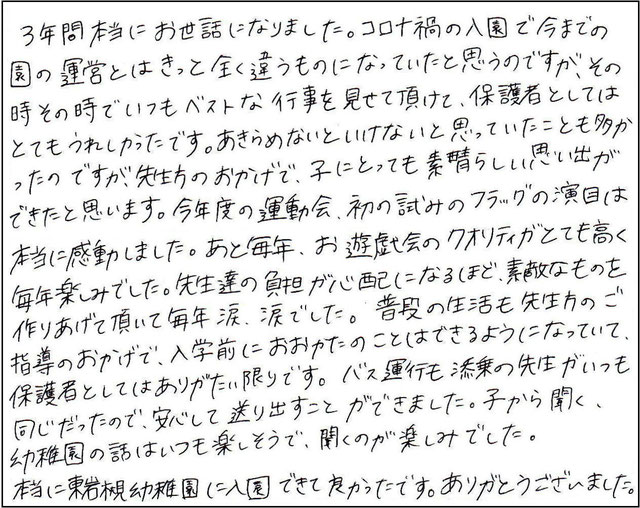 3年間本当にお世話になりました。コロナ禍の入園で今までの
園の運営とはきっと全く違うものになっていたと思うのですが、その
時その時でいつもベストな行事を見せて頂けて、保護者としては
とてもうれしかったです。あきらめないといけないと思っていたことも多か
ったのですが、先生方のおかげで、子にとっても素晴らしい思い出が
できたと思います。今年度の運動会、初の試みのフラッグの演目は
本当に感動しました。あと毎年、お遊戯会のクオリティがとても高く
毎年楽しみでした。先生達の負担が心配になるほど、素敵なものを
作りあげて頂いて毎年涙、涙でした。普段の生活も先生方のご
指導のおかげで、入学前におおかたのことはできるようになっていて、
保護者としてはありがたい限りです。バス運行も添乗の先生がいつも
同じだったので、安心して送り出すことができました。子から聞く、
幼稚園の話はいつも楽しそうで、聞くのが楽しみでした。
本当に東岩槻幼稚園に入園できて良かったです。ありがとうございました。